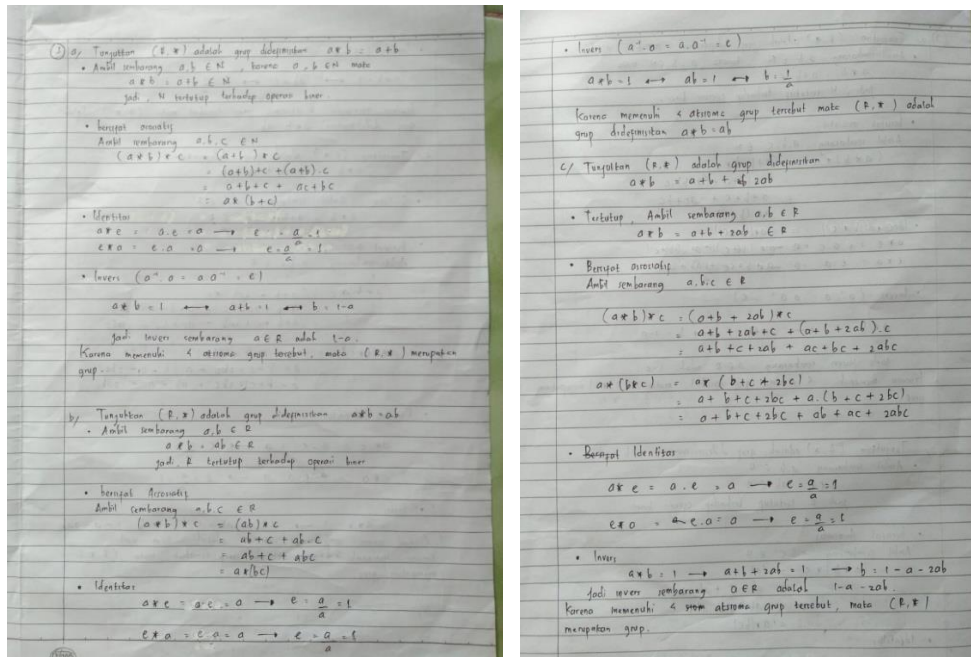 ③ a/ Tunjukkan (R,*) adalah grup didefinisikan a*b = a+b
• Ambil sembarang a,b ∈ N, karena a,b ∈ N maka
a*b = a+b ∈ N
Jadi, N tertutup terhadap operasi biner.
• bersifat asosiatif
Ambil sembarang a,b,c ∈ N
(a*b)*c = (a+b)*c
= (a+b)+c + (a+b).c
= a+b+c + ac+bc
= a*(b+c)
• Identitas
a*e = a.e = a → e = a/a = 1
e*a = e.a = a → e = a/a = 1
• Invers (a⁻¹ a = a a⁻¹ = e)
a*b = 1 ↔ a+b = 1 ↔ b = 1-a
Jadi invers sembarang a ∈ R adalah 1-a.
Karena memenuhi 4 aksioma grup tersebut, maka (R,*) merupakan
grup.
b/ Tunjukkan (R,*) adalah grup didefinisikan a*b = ab
• Ambil sembarang a,b ∈ R
a*b = ab ∈ R
Jadi, R tertutup terhadap operasi biner
• bersifat Asosiatif
Ambil sembarang a,b,c ∈ R
(a*b)*c = (ab)*c
= ab+c + ab.c
= ab+c + abc
= a*(bc)
• Identitas
a*e = a.e = a → e = a/a = 1
e*a = e.a = a → e = a/a = 1
• Invers (a⁻¹.a = a.a⁻¹ = e)
a*b = 1 ↔ ab = 1 ↔ b = 1/a
Karena memenuhi 4 aksioma grup tersebut maka (R,*) adalah
grup didefinisikan a*b = ab
c/ Tunjukkan (R,*) adalah grup didefinisikan
a*b = a+b + 2ab
• Tertutup, Ambil sembarang a,b ∈ R
a*b = a+b+2ab ∈ R
• Bersifat asosiatif
Ambil sembarang a,b,c ∈ R
(a*b)*c = (a+b + 2ab)*c
= a+b + 2ab+c + (a+b+2ab).c
= a+b+c+2ab + ac+bc + 2abc
a*(b*c) = a*(b+c+2bc)
= a+ b+c+2bc + a.(b+c+2bc)
= a+b+c+2bc + ab + ac + 2abc
• Identitas
a*e = a.e = a → e = a/a = 1
e*a = e.a = a → e = a/a = 1
• Invers
a*b = 1 → a+b+2ab = 1 → b = 1-a-2ab
Jadi invers sembarang a∈R adalah 1-a-2ab.
Karena memenuhi 4 aksioma grup tersebut, maka (R,*)
merupakan grup.